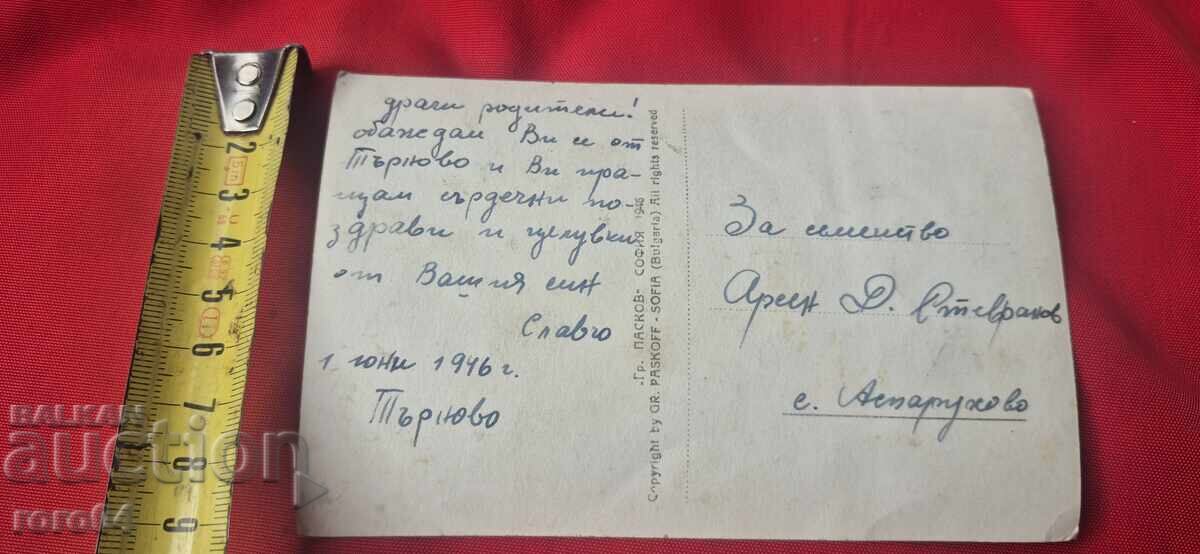 драги родители!
обаждам Ви се от
Търново и Ви пра-
щам сърдечни по-
здрави и целувки
от Вашия син
Славчо
1 юни 1946 г.
Търново
-Гр. ПАСКОВ- СОФИЯ 1946
Copyright by GR. PASKOFF - SOFIA (Bulgaria) All rights reserved
За семейство
Арсен Д.
с. Аспарухово
2
3
4
5
6
7
8
9
BALKAN
auction
roro64